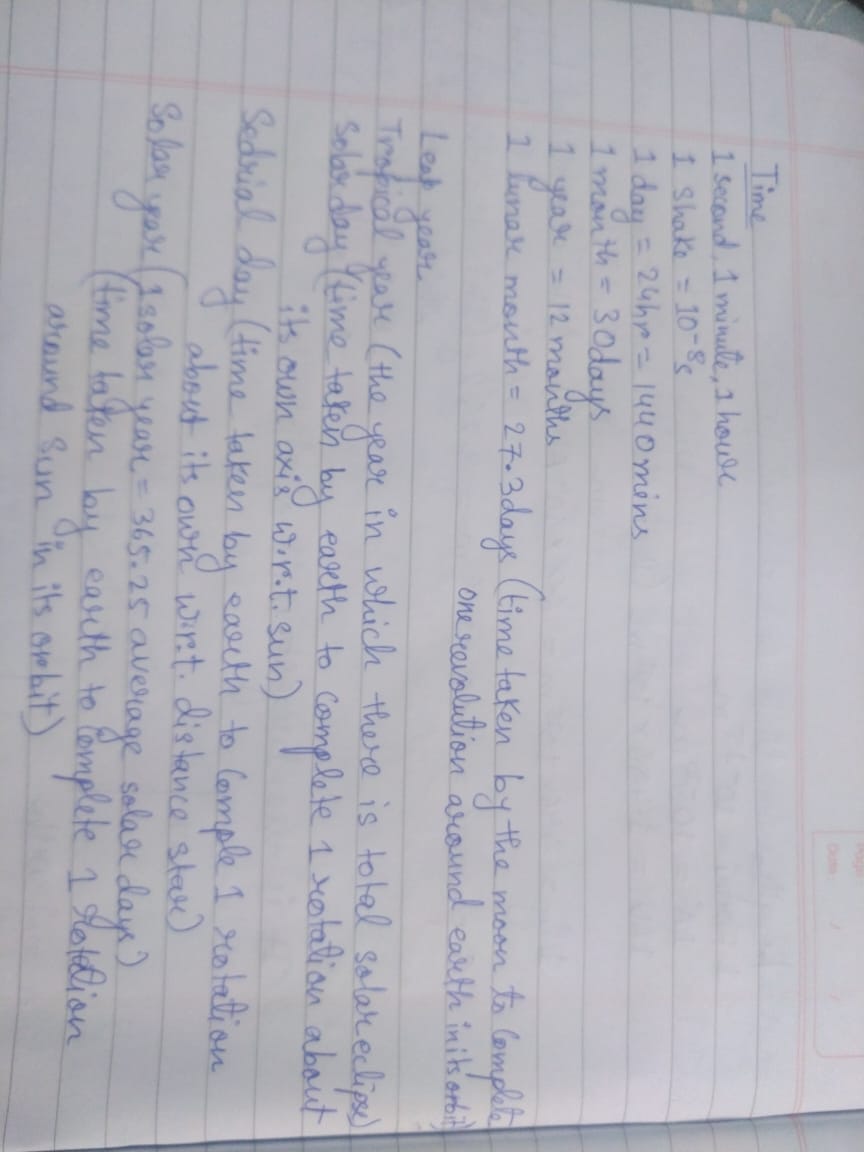 Time
1 second, 1 minute, 1 hour
1 shake = 10⁻⁸s
1 day = 24hr = 1440mins
1 month = 30days
1 year = 12 months
1 lunar month = 27.3days (time taken by the moon to complete
one revolution around earth in its orbit)
Leap year
Tropical year (the year in which there is total solar eclipse)
Solar day (time taken by earth to complete 1 rotation about
its own axis w.r.t. sun)
Sedrial day (time taken by earth to comple 1 rotation
about its own w.r.t. distance star)
Solar year (1 solar year = 365.25 average solar days)
(time taken by earth to complete 1 rotation
around sun in its orbit)